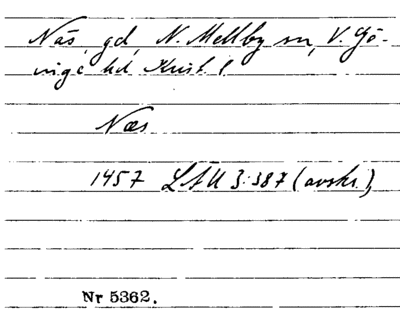 Näs, gd, N. Mellby sn, V. Gö-
inge hd Krist. l
Næs
1457 LÄU 3:387 (avskr.)
Nr 5362.